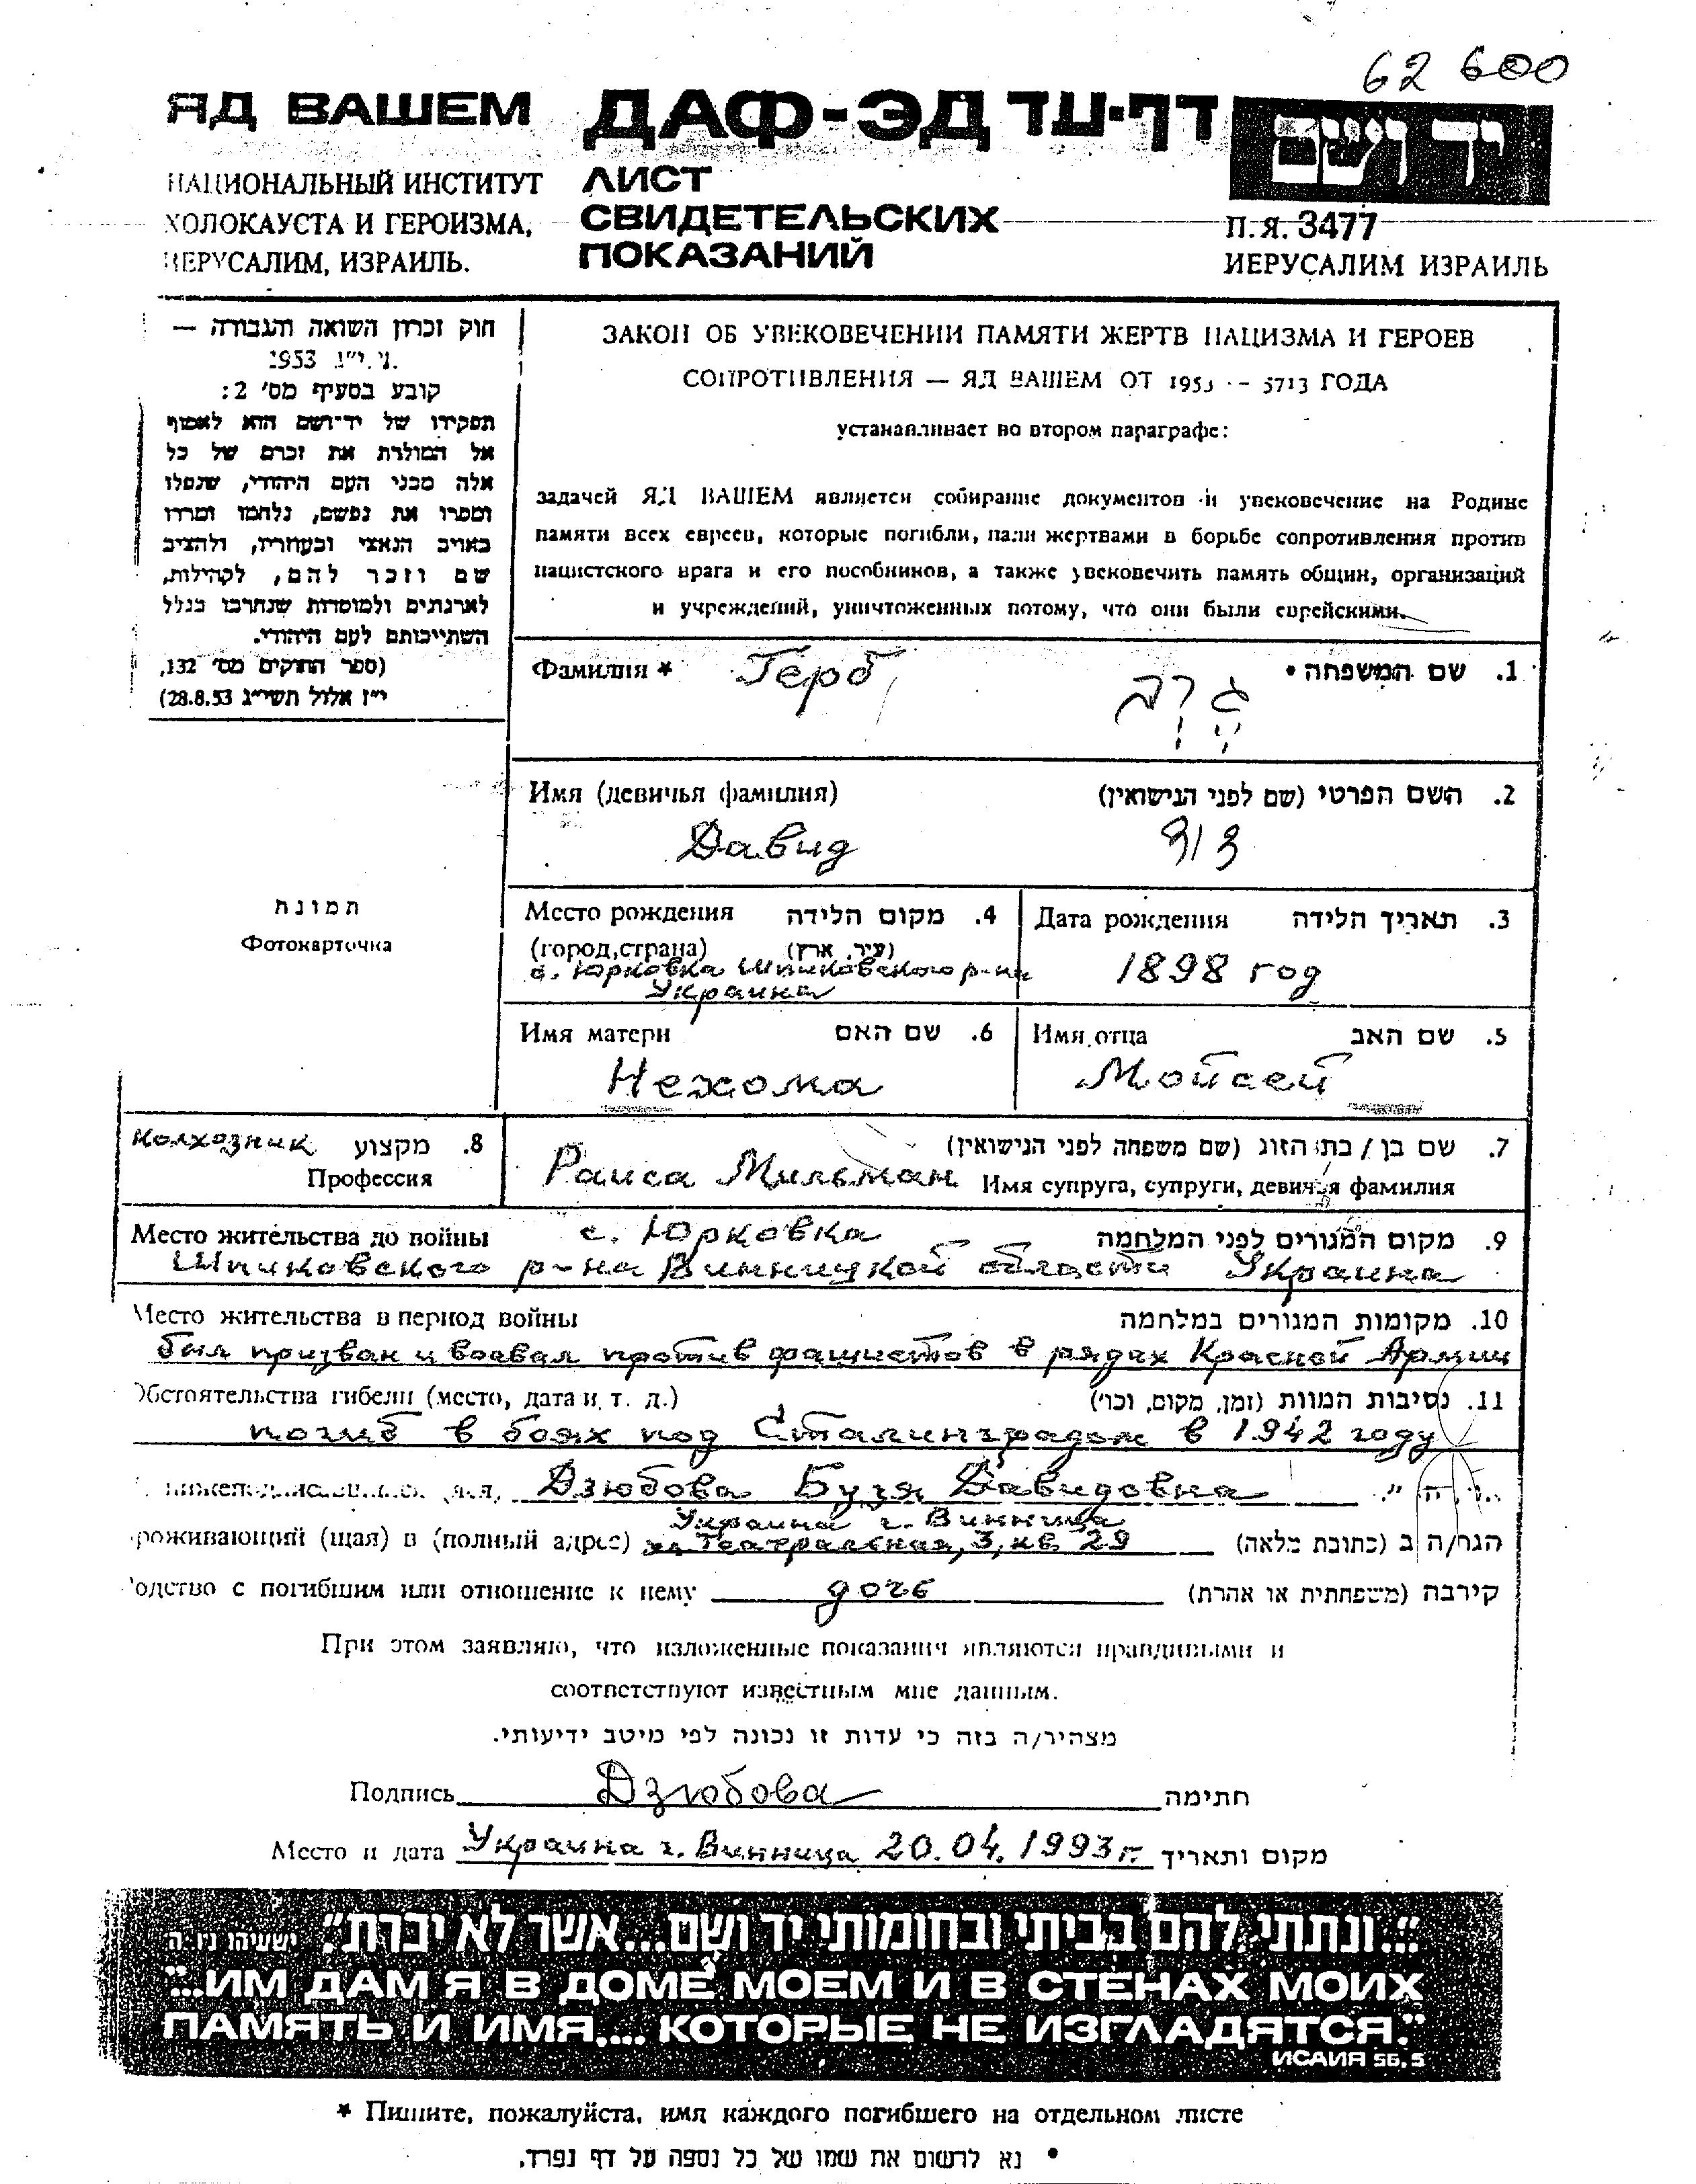 62 600
ЯД ВАШЕМ ДАФ-ЭД דף-עד יד ושם
НАЦИОНАЛЬНЫЙ ИНСТИТУТ
ХОЛОКАУСТА И ГЕРОИЗМА,
ИЕРУСАЛИМ, ИЗРАИЛЬ.
ЛИСТ
СВИДЕТЕЛЬСКИХ
ПОКАЗАНИЙ
П.Я. 3477
ИЕРУСАЛИМ ИЗРАИЛЬ
חוק זכרון השואה והגבורה —
1953
קובע בסעיף מס' 2:
תפקידו של יד-ושם הוא לאסוף
אל המולדת את זכרם של כל
אלה מבני העם היהודי, שנפלו
ומסרו את נפשם, נלחמו ומרדו
באויב הנאצי ובעוזריו, ולהציב
שם וזכר להם, לקהילות,
לארגונים ולמוסדות שנחרבו בגלל
השתייכותם לעם היהודי.
(ספר החוקים מס' 132,
י"ז אלול תשי"ג 28.8.53)
ЗАКОН ОБ УВЕКОВЕЧЕНИИ ПАМЯТИ ЖЕРТВ НАЦИЗМА И ГЕРОЕВ
СОПРОТИВЛЕНИЯ — ЯД ВАШЕМ ОТ 1953 — 5713 ГОДА
устанавливает во втором параграфе:
задачей ЯД ВАШЕМ является собирание документов и увековечение на Родине
памяти всех евреев, которые погибли, пали жертвами в борьбе сопротивления против
нацистского врага и его пособников, а также увековечить память общин, организаций
и учреждений, уничтоженных потому, что они были еврейскими.
Фамилия * Герб 1. שם המשפחה •
גרב
Имя (девичья фамилия) 2. השם הפרטי (שם לפני הנישואין)
Давид דוד
Место рождения 4. מקום הלידה
(город,страна) (עיר, ארץ)
с. Юрковка Шпиковского р-на
Украина
Дата рождения 3. תאריך הלידה
1898 год
תמונה
Фотокарточка
Имя матери 6. שם האם
Нехома
Имя отца 5. שם האב
Мойсей
Колхозник 8. מקצוע
Профессия
7. שם בן / בת הזוג (שם משפחה לפני הנישואין)
Раиса Мильман Имя супруга, супруги, девичья фамилия
Место жительства до войны с. Юрковка 9. מקום המגורים לפני המלחמה
Шпиковского р-на Винницкой области Украина
Место жительства в период войны 10. מקומות המגורים במלחמה
был призван и воевал против фашистов в рядах Красной Армии
Обстоятельства гибели (место, дата и т. д.) 11. נסיבות המוות (זמן, מקום, וכו')
погиб в боях под Сталинградом в 1942 году
Дзюбова Бузя Давидовна
Украина г. Винница
проживающий (щая) в (полный адрес) ул. Театральная, 3, кв 29 הגר/ה ב (כתובת מלאה)
Родство с погибшим или отношение к нему дочь קירבה (משפחתית או אחרת)
При этом заявляю, что изложенные показания являются правдивыми и
соответствуют известным мне данным.
מצהיר/ה בזה כי עדות זו נכונה לפי מיטב ידיעותי.
Подпись Дзюбова חתימה
Место и дата Украина г. Винница 20.04.1993 г. מקום ותאריך
"...ונתתי להם בביתי ובחומותי יד ושם...אשר לא יכרת." ישעיהו נ"ו ה
"...ИМ ДАМ Я В ДОМЕ МОЕМ И В СТЕНАХ МОИХ
ПАМЯТЬ И ИМЯ.... КОТОРЫЕ НЕ ИЗГЛАДЯТСЯ."
ИСАИЯ 56, 5
* Пишите, пожалуйста, имя каждого погибшего на отдельном листе
• נא לרשום את שמו של כל נספה על דף נפרד.